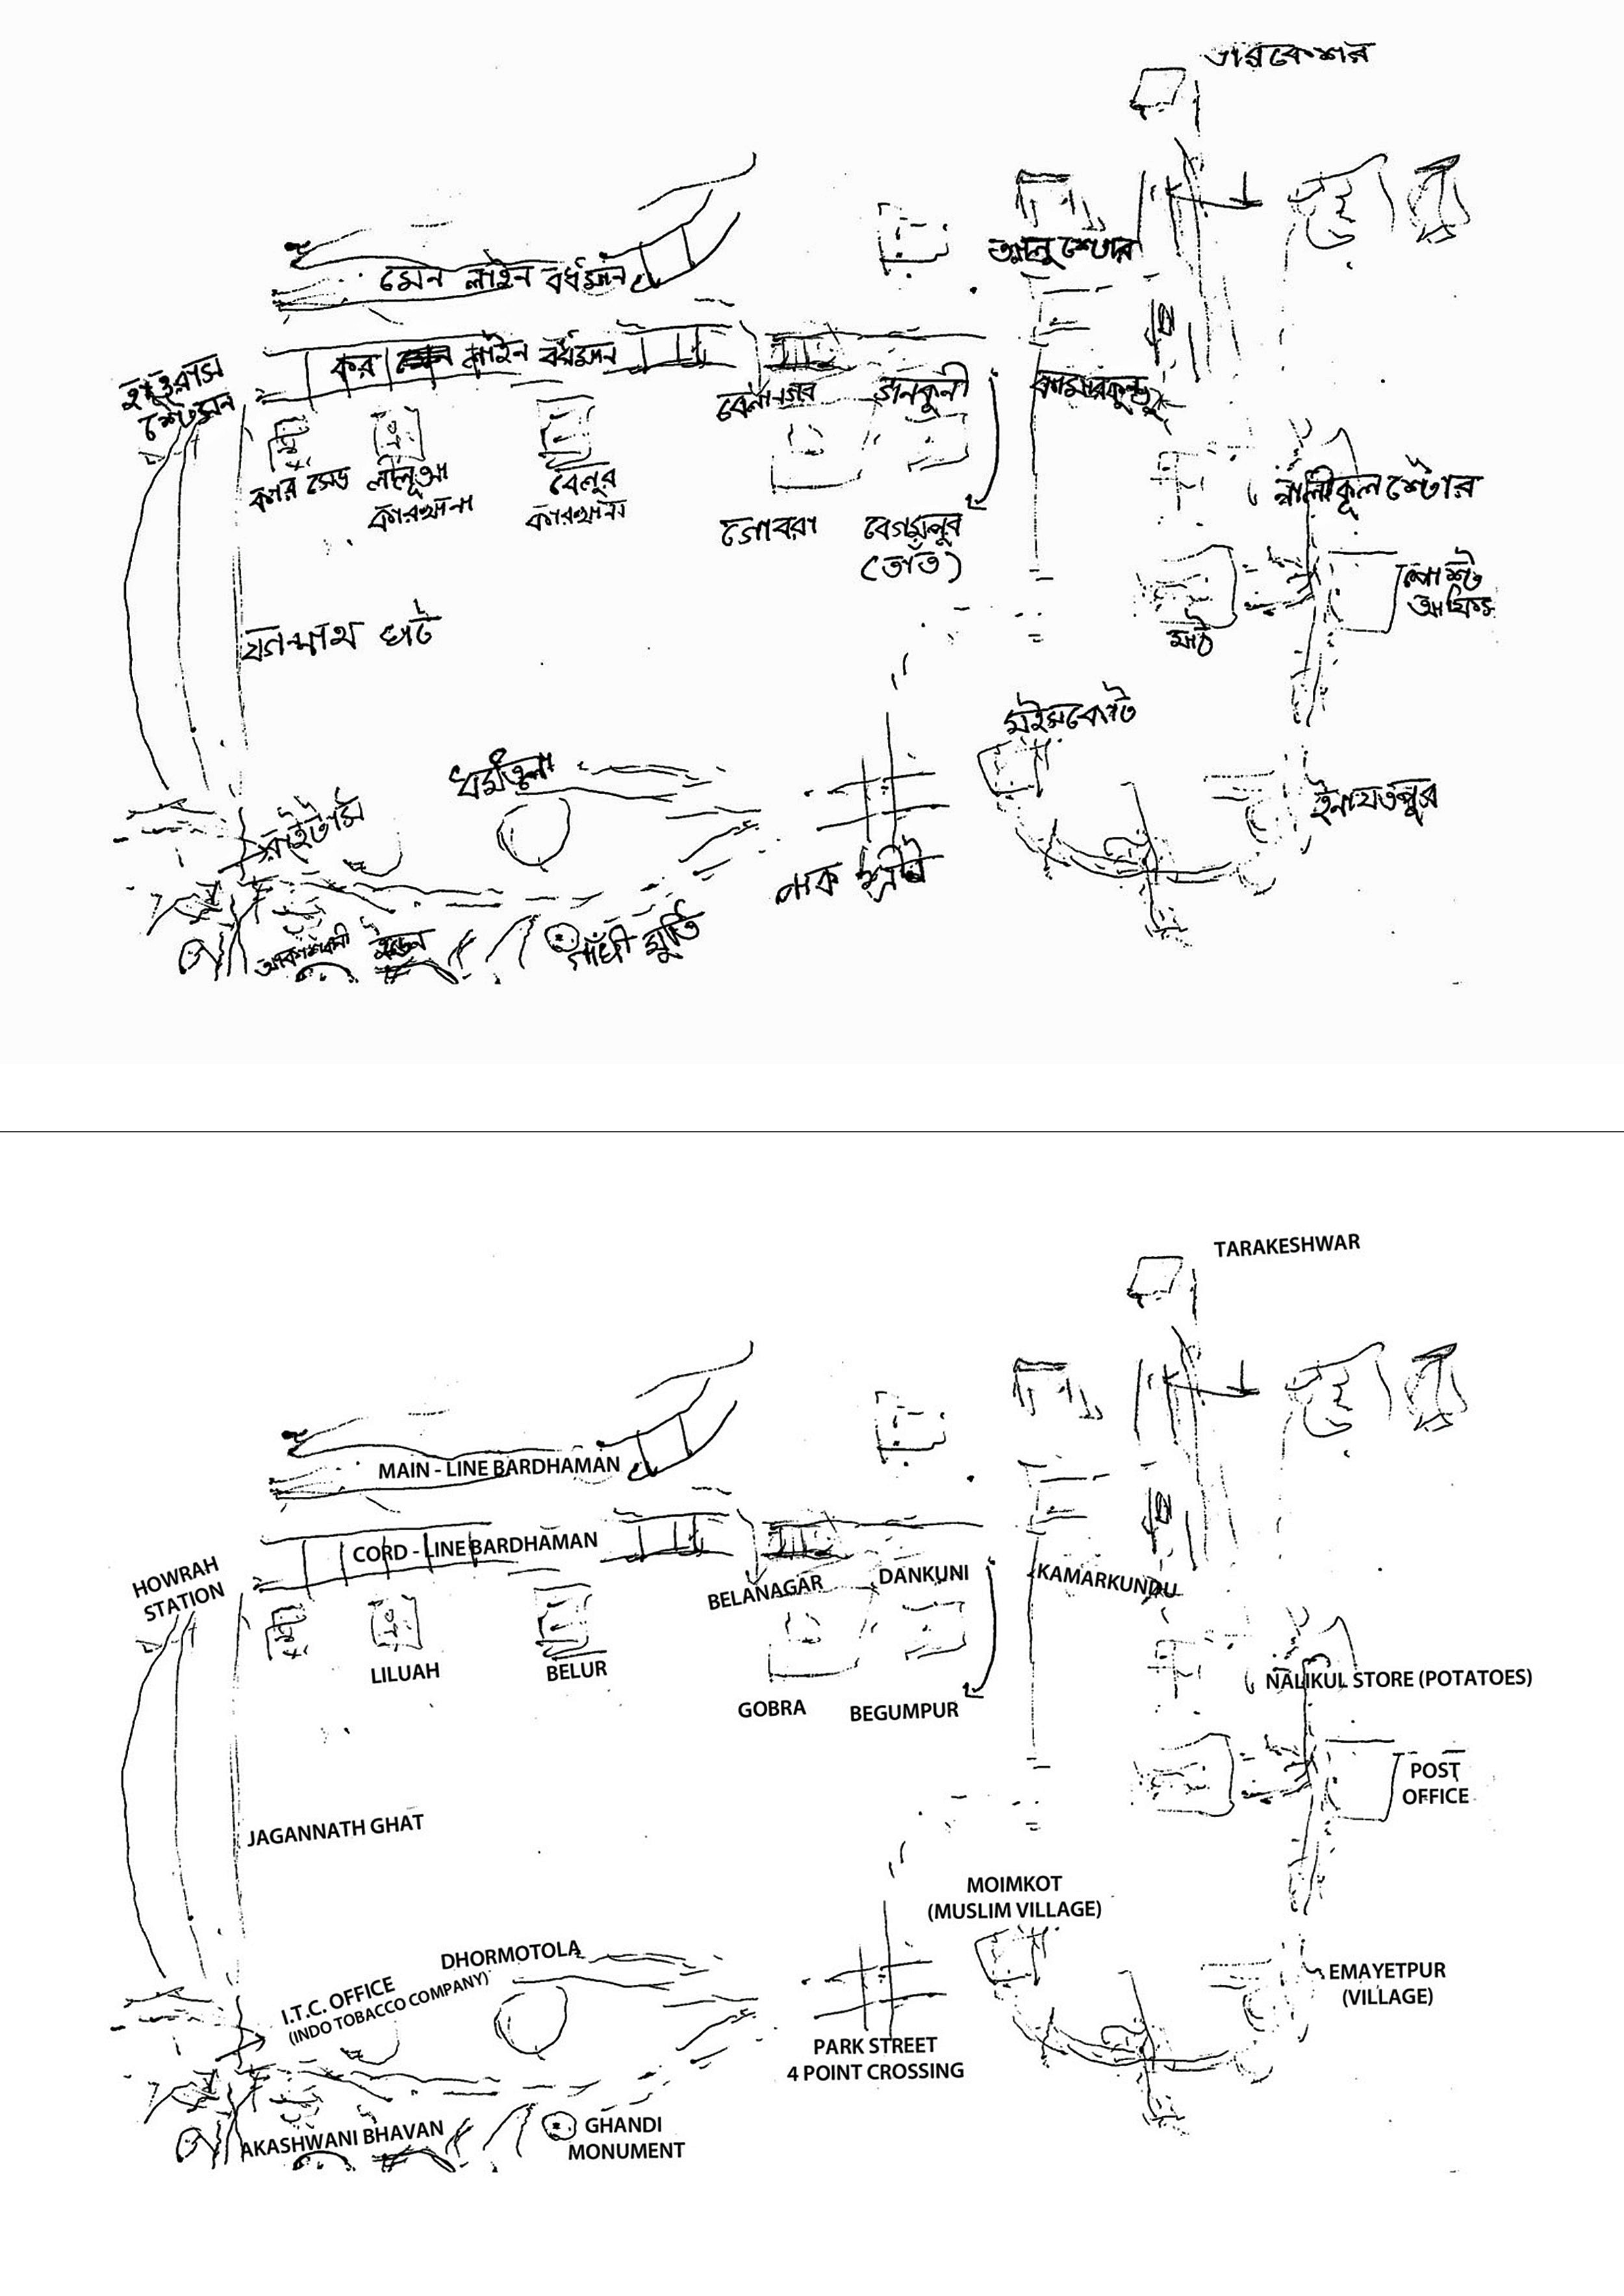 তারকেশর
আলু স্টোর
মেন লাইন বর্ধমান
কর লাইন বর্ধমান
স্টেসন
বেলানগর
ডানকুনী
কামারকুন্ডু
কার সেড
লীলুআ
কারখানা
বেলুর
কারখানা
গোবরা
বেগমপুর
(তাঁত)
নালীকূল স্টোর
পোস্ট
আফিস
মাঠ
যগন্নাথ ঘাট
মইমকোট
ধর্মতলা
ইনায়েতপুর
রাইটার্স
পাক স্ট্রীট
আকাশবানী
ইডেন
গাঁধী মূর্তি
TARAKESHWAR
MAIN - LINE BARDHAMAN
CORD - LINE BARDHAMAN
HOWRAH
STATION
BELANAGAR
DANKUNI
KAMARKUNDU
LILUAH
BELUR
GOBRA
BEGUMPUR
NALIKUL STORE (POTATOES)
POST
OFFICE
JAGANNATH GHAT
MOIMKOT
(MUSLIM VILLAGE)
DHORMOTOLA
I.T.C. OFFICE
(INDO TOBACCO COMPANY)
EMAYETPUR
(VILLAGE)
PARK STREET
4 POINT CROSSING
AKASHWANI BHAVAN
GHANDI
MONUMENT